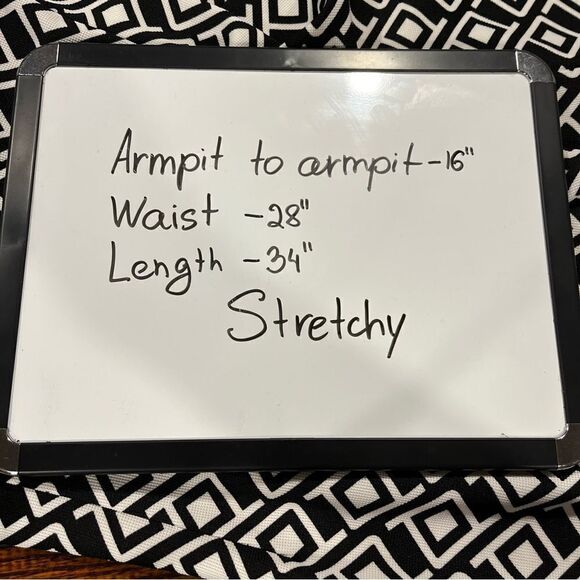 Armpit to armpit - 16"
Waist - 28"
Length - 34"
Stretchy